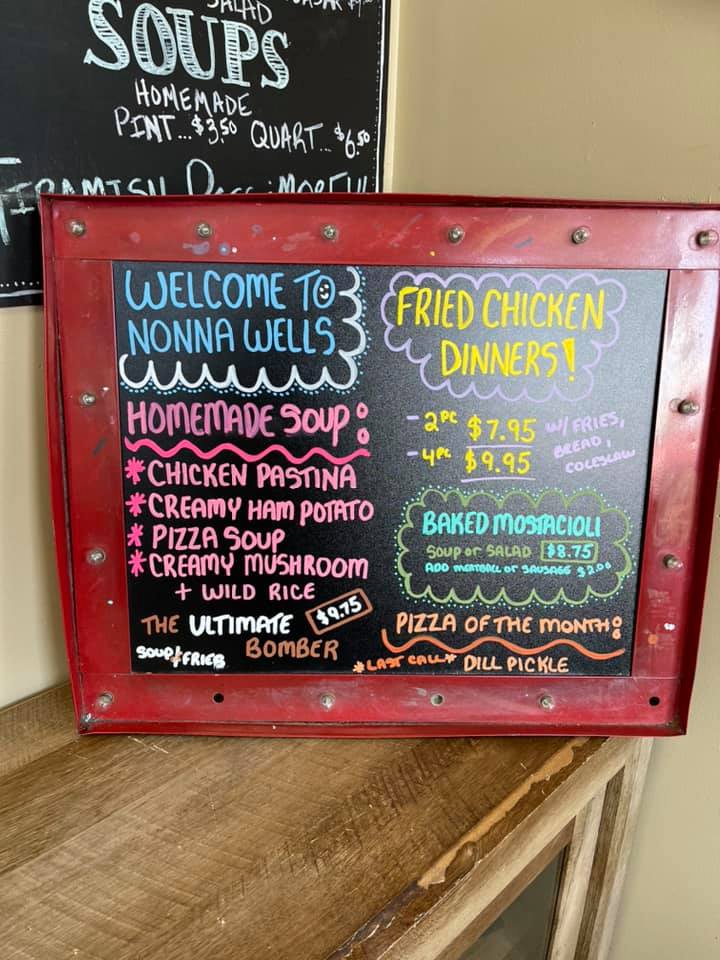 SALAD
SOUPS
HOMEMADE
PINT...$3.50 QUART...$6.50
TIRAMISU
WELCOME TO
NONNA WELLS
HOMEMADE SOUP:
*CHICKEN PASTINA
*CREAMY HAM POTATO
*PIZZA SOUP
*CREAMY MUSHROOM
+ WILD RICE
THE ULTIMATE $9.75
BOMBER
SOUP/FRIES
FRIED CHICKEN
DINNERS!
- 2PC $7.95 W/ FRIES,
BREAD,
- 4PC $9.95 COLESLAW
BAKED MOSTACIOLI
SOUP or SALAD $8.75
ADD MEATBALL or SAUSAGE $2.00
PIZZA OF THE MONTH:
*LAST CALL* DILL PICKLE